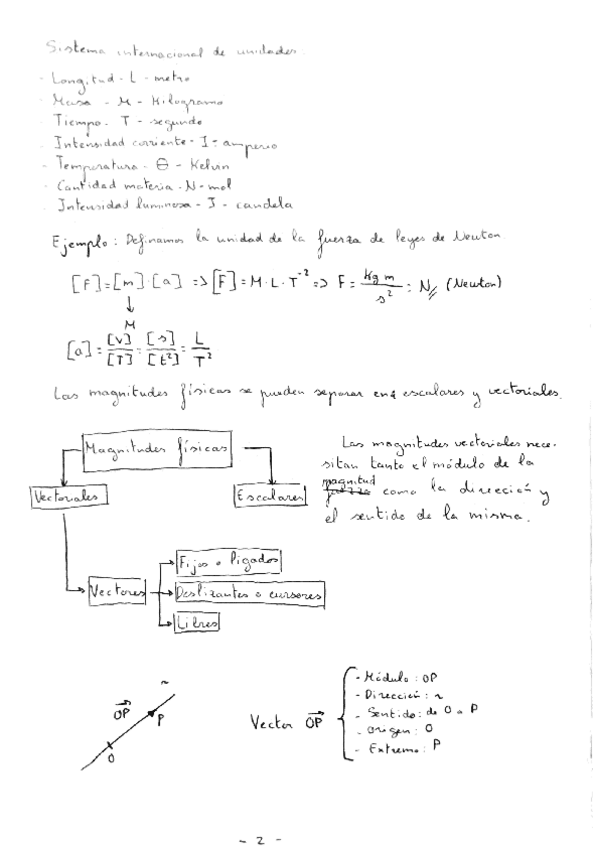 Sistema internacional de unidades:
- Longitud - L - metro
- Masa - M - Kilogramo
- Tiempo - T - segundo
- Intensidad corriente - I = amperio
- Temperatura - Θ - Kelvin
- Cantidad materia - N - mol
- Intensidad luminosa - J - candela
Ejemplo: Definamos la unidad de la fuerza de leyes de Newton.
[F] = [m]·[a] => [F] = M·L·T⁻² => F = Kg m / s² = N// (Newton)
↓
M
[a] = [v]/[T] = [s]/[t²] = L/T²
Las magnitudes físicas se pueden separar en escalares y vectoriales.
Magnitudes físicas
Vectoriales
Escalares
Las magnitudes vectoriales nece-
sitan tanto el módulo de la
magnitud como la dirección y
el sentido de la misma.
Vectores
Fijos o ligados
Deslizantes o cursores
Libres
r
OP
P
O
Vector OP
- Módulo: OP
- Dirección: r
- Sentido: de O a P
- Origen: O
- Extremo: P
- 2 -